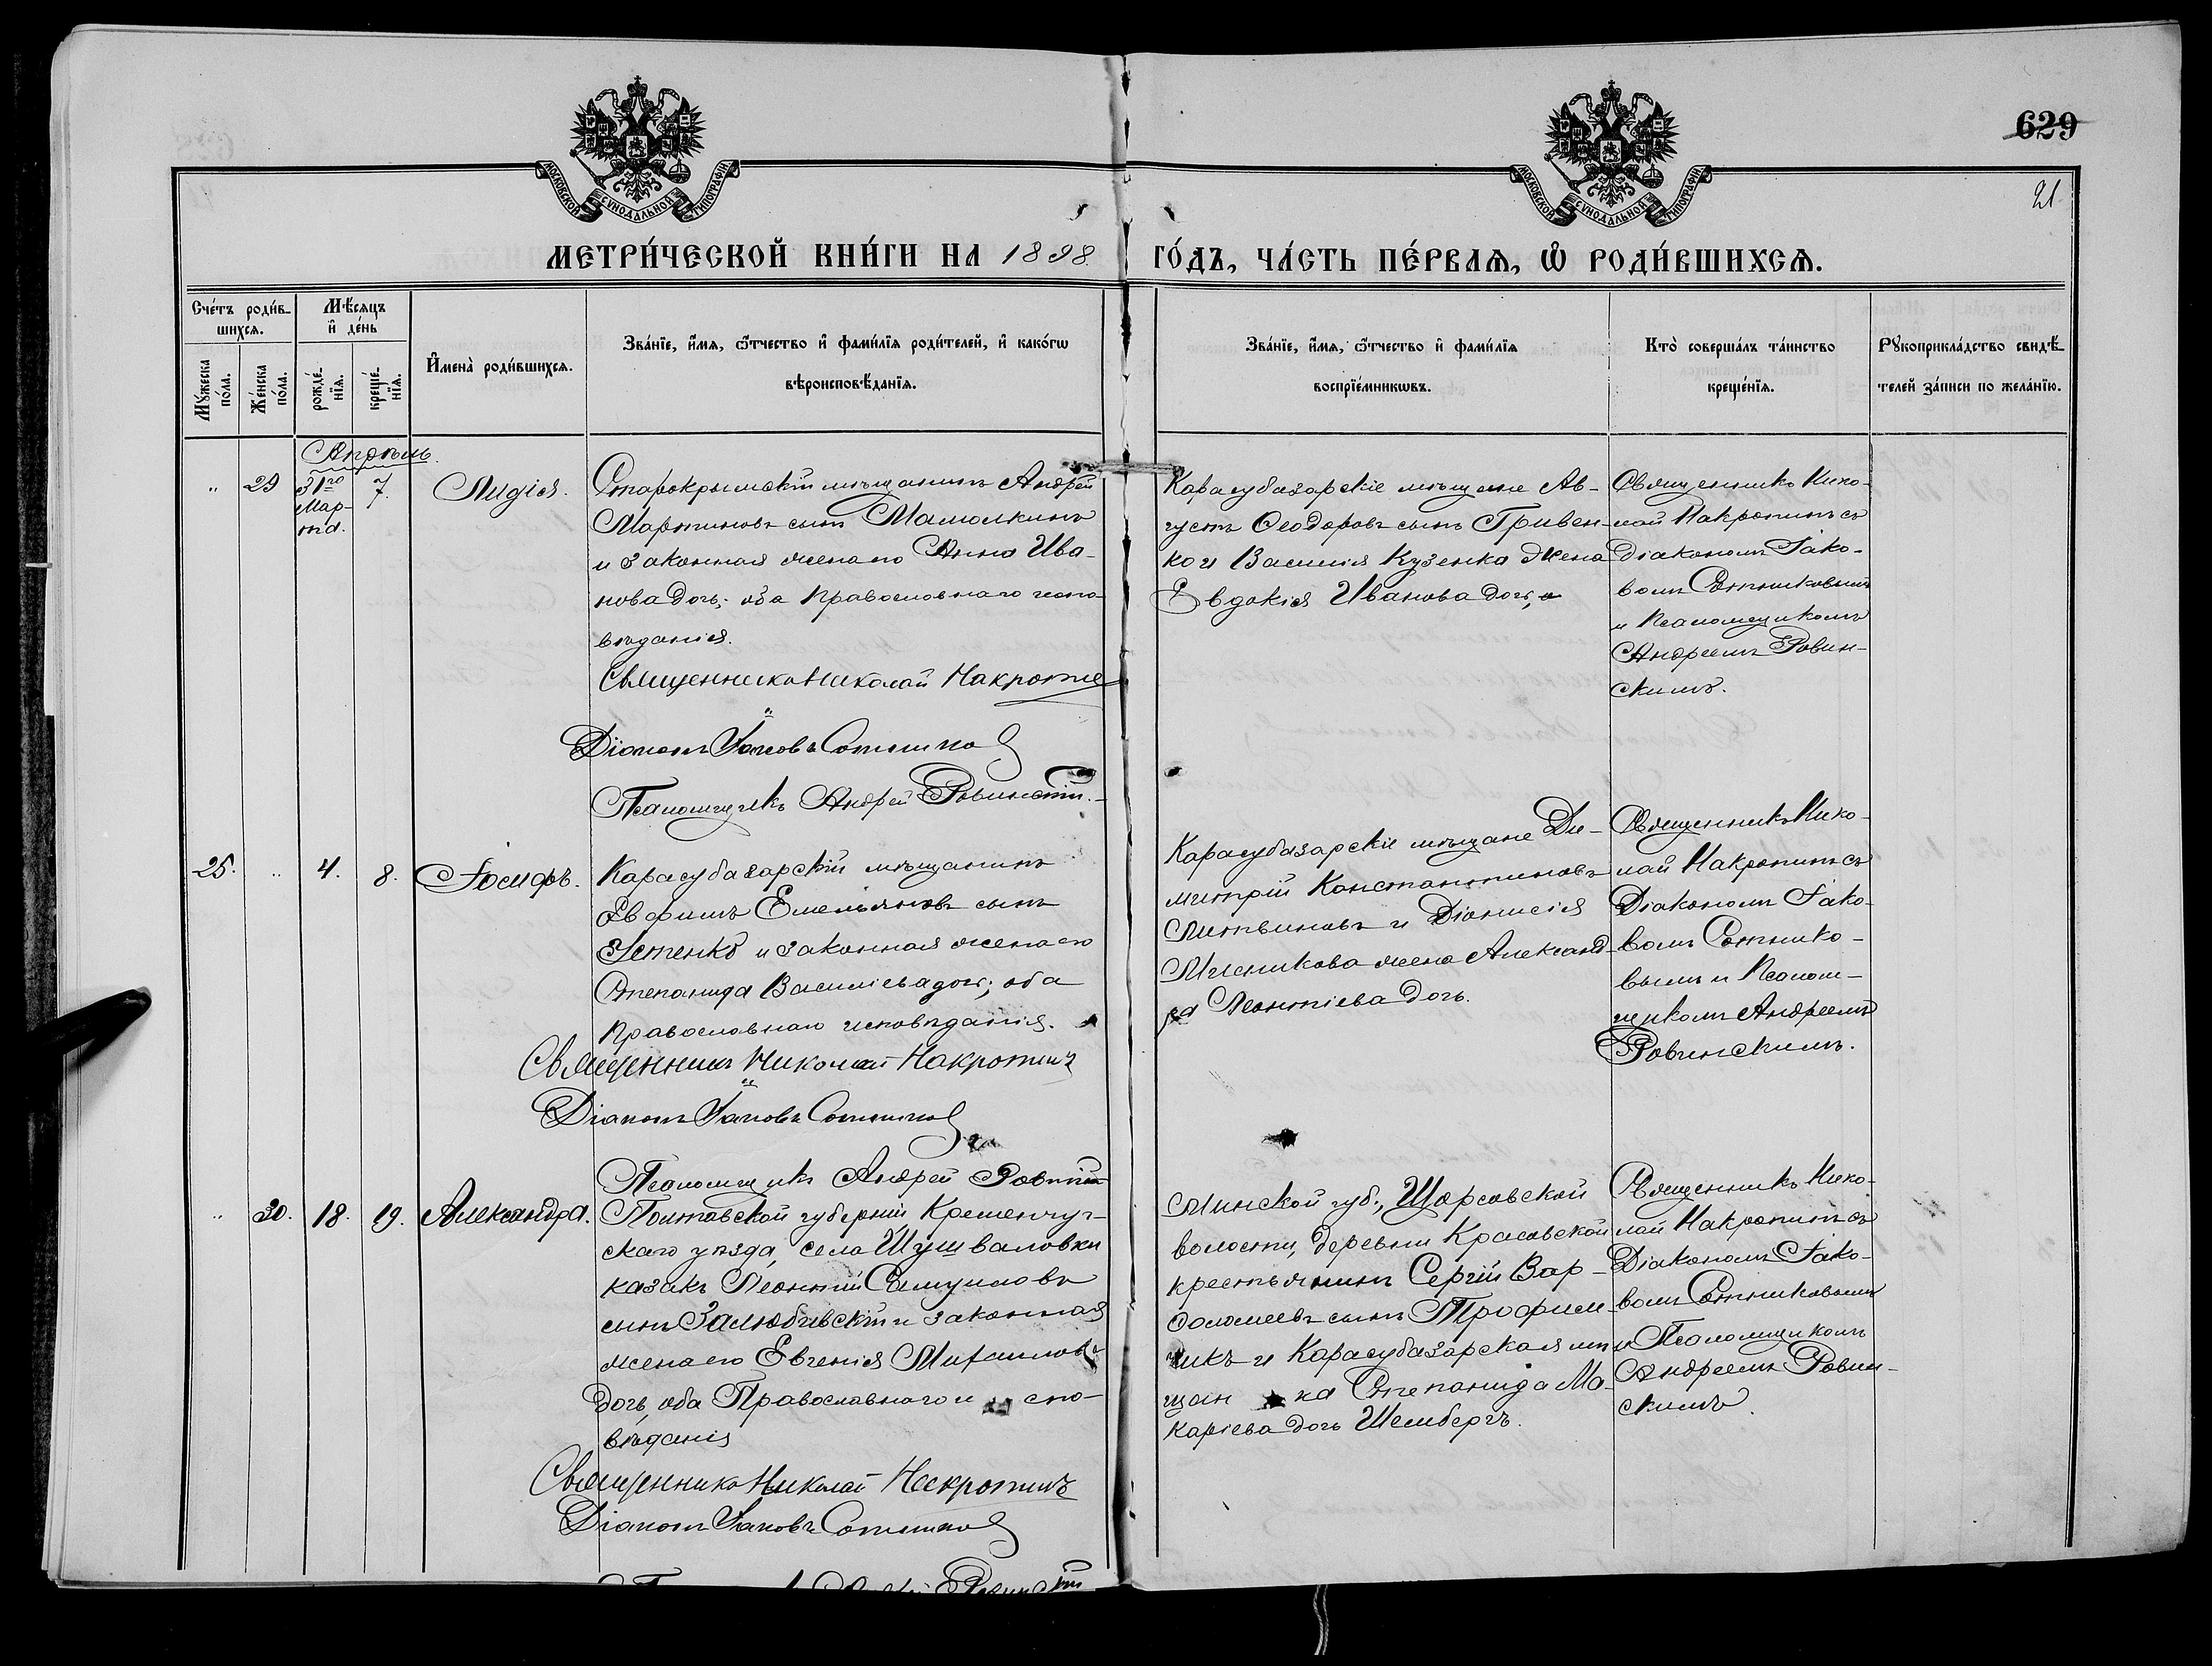 МОСКОВСКОЙ СѴНОДАЛЬНОЙ ТИПОГРАФІИ
МОСКОВСКОЙ СѴНОДАЛЬНОЙ ТИПОГРАФІИ
629
21
МЕТРИ́ЧЕСКОЙ КНИ́ГИ НА 1898 ГО́ДЪ, ЧА́СТЬ ПЕ́РВАѦ, Ѡ҆ РОДИ́ВШИХСѦ.
Сче́тъ роди́в-
шихсѧ.
Мꙋ́жеска по́ла.
Же́нска по́ла.
Мѣ́сяцъ
и҆ де́нь
рожде́-
нїѧ.
креще́-
нїѧ.
И҆мена̀ роди́вшихсѧ.
Зва́нїе, и҆́мѧ, ѻ҆́тчество и҆ фами́лїѧ роди́телей, и҆ како́гѡ
вѣроисповѣ́данїѧ.
Зва́нїе, и҆́мѧ, ѻ҆́тчество и҆ фами́лїѧ
воспрїе́мникѡвъ.
Кто̀ соверша́лъ та́инство
креще́нїѧ.
Рꙋкоприкла́дство свидѣ́-
телей за́писи по жела́нїю.
Апрѣль.
" 29 31го Мар-та. 7. Лидія.
Старокрымскій мѣщанинъ Андрей
Мартиновъ сынъ Мамолкинъ
и законная жена его Анна Ива-
нова дочь; оба православнаго испо-
вѣданія.
Священникъ Николай Накропинъ
Діаконъ Іаковъ Сотников
Псаломщикъ Андрей Ровинскій.
Карасубазарскіе мѣщане Ав-
густъ Ѳеодоровъ сынъ Гривен-
ко и Василія Кузенка жена
Евдокія Иванова дочь,
Священникъ Нико-
лай Накропинъ съ
Діакономъ Іако-
вомъ Сотниковымъ
и Псаломщикомъ
Андреемъ Ровин-
скимъ.
25. " 4. 8. Іосифъ.
Карасубазарскій мѣщанинъ
Евфимъ Емельяновъ сынъ
Устенко и законная жена его
Степанида Василіева дочь; оба
православнаго исповѣданія.
Священникъ Николай Накропинъ
Діаконъ Іаковъ Сотников
Псаломщикъ Андрей Ровинскій
Карасубазарскіе мѣщане Ди-
митрій Константиновъ
Литвиновъ и Діонисія
Мясникова жена Александ-
ра Леонтіева дочь.
Священникъ Нико-
лай Накропинъ съ
Діакономъ Іако-
вомъ Сотнико-
вымъ и Псалом-
щикомъ Андреемъ
Ровинскимъ.
" 30. 18. 19. Александра.
Полтавской губерніи Кременчуг-
скаго уѣзда, села Шушваловки
казакъ Леонтій Самуиловъ
сынъ Залюбовскій и законная
жена его Евгенія Михаилова
дочь, оба Православнаго испо-
вѣданія
Священникъ Николай Накропинъ
Діаконъ Іаковъ Сотников
Минской губ., Щорсовской
волости, деревни Красовской
крестьянинъ Сергій Вар-
ѳоломеевъ сынъ Трофим-
чикъ и Карасубазарская мѣ-
щанка Степанида Ма-
каріева дочь Шембергъ.
Священникъ Нико-
лай Накропинъ съ
Діакономъ Іако-
вомъ Сотниковымъ
и Псаломщикомъ
Андреемъ Ровин-
скимъ.